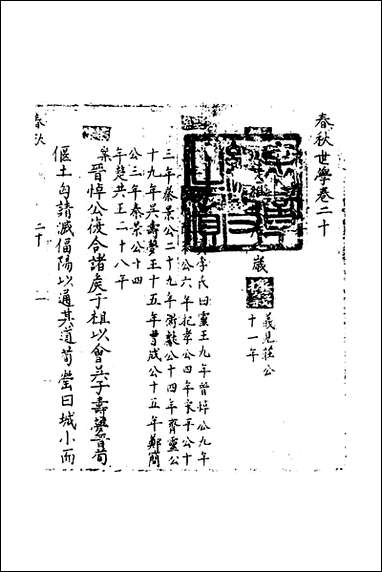 春秋世學卷二十
義見莊公
十一年
李氏曰靈王九年晉悼公九年
公六年杞孝公四年宋平公十
三年秦景公二十九年衛獻公十四年齊靈公
十九年吳壽夢王十五年曹成公十五年鄭簡
公三年秦景公十四
年楚共王二十八年
晉悼公復合諸矦于柤以會吳子壽夢晉荀
偃士匄請滅偪陽以通其道荀罃曰城小而
春秋
二十
一